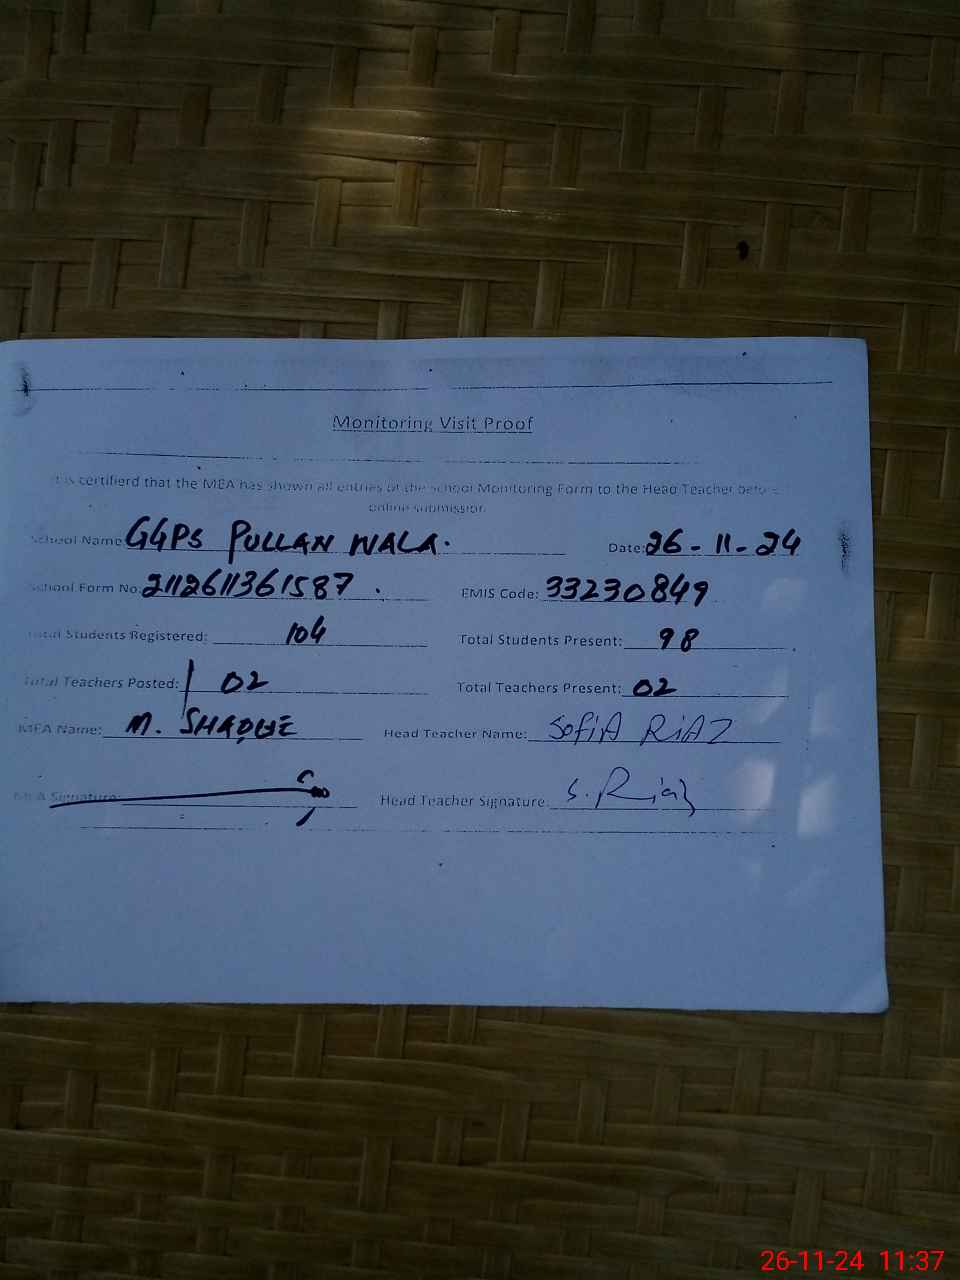 Monitoring Visit Proof
It is certifierd that the MEA has shown all entries of the School Monitoring Form to the Head Teacher before
online submission
School Name: GGPS PULLAN WALA. Date: 26-11-24
School Form No: 2112611361587. EMIS Code: 33230849
Total Students Registered: 104 Total Students Present: 98
Total Teachers Posted: 02 Total Teachers Present: 02
MEA Name: M. Head Teacher Name: SOFIA RIAZ
MEA Signature: Head Teacher Signature: S. Riaz
26-11-24 11:37